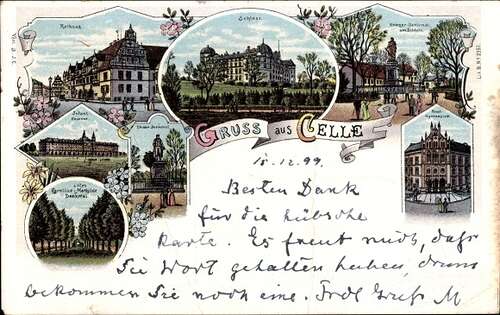 Rathaus
Schloss
Krieger-Denkmal
am Schloss
Infant.
Kaserne
Thaer-Denkmal
Gymnasium
GRUSS aus CELLE
Denkmal
15.12.99
Besten Dank
für die hübsche
Karte. Es freut mich, daß
Sie Wort gehalten haben, drum
bekommen Sie noch eine. Frdl Gruß M